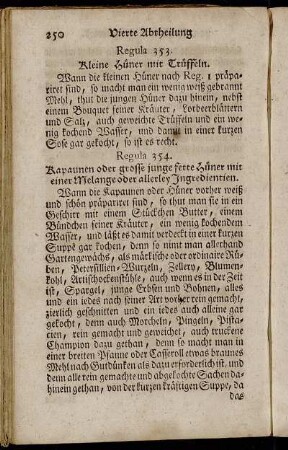 250 Vierte Abrtheilung
Regula 353.
Kleine Hüner mit Trüffeln.
Wann die kleinen Hüner nach Reg. 1 präpa-
riret sind, so macht man ein wenig weiß gebrannt
Mehl, thut die jungen Hüner dazu hinein, nebst
einem Bouquet feiner Kräuter, Lorbeerblättern
und Saltz, auch geweichte Trüffeln und ein we-
nig kochend Wasser, und damit in einer kurzen
Sose gar gekocht, so ist es recht.
Regula 354.
Kapaunen oder grosse junge fette Hüner mit
einer Melange oder allerley Ingredientien.
Wann die Kapaunen oder Hüner vorher weiß
und schön präparitet sind, so thut man sie in ein
Geschirr mit einem Stückchen Butter, einem
Bündchen feiner Kräuter, ein wenig kochendem
Wasser, und läßt es damit verdeckt in einer kurzen
Suppe gar kochen, denn so nimt man allerhand
Gartengewächs, als märkische oder ordinaire Rü-
ben, Petersillien-Wurzeln, Zellery, Blumen-
kohl, Artischockenstühle, auch wenn es in der Zeit
ist, Spargel, junge Erbsen und Bohnen, alles
und ein iedes nach seiner Art vorher rein gemacht,
zierlich geschnitten und ein iedes auch alleine gar
gekocht, denn auch Morcheln, Pingeln, Pista-
cien, rein gemacht und geweichet, auch truckene
Champion dazu gethan, denn so macht man in
einer breiten Pfanne oder Casseroll etwas braunes
Mehl nach Gutdünken als dazu erforderlich ist, und
denn alle rein gemachte und abgekochte Sachen da-
hinein gethan, von der kurzen kräftigen Suppe, da
das